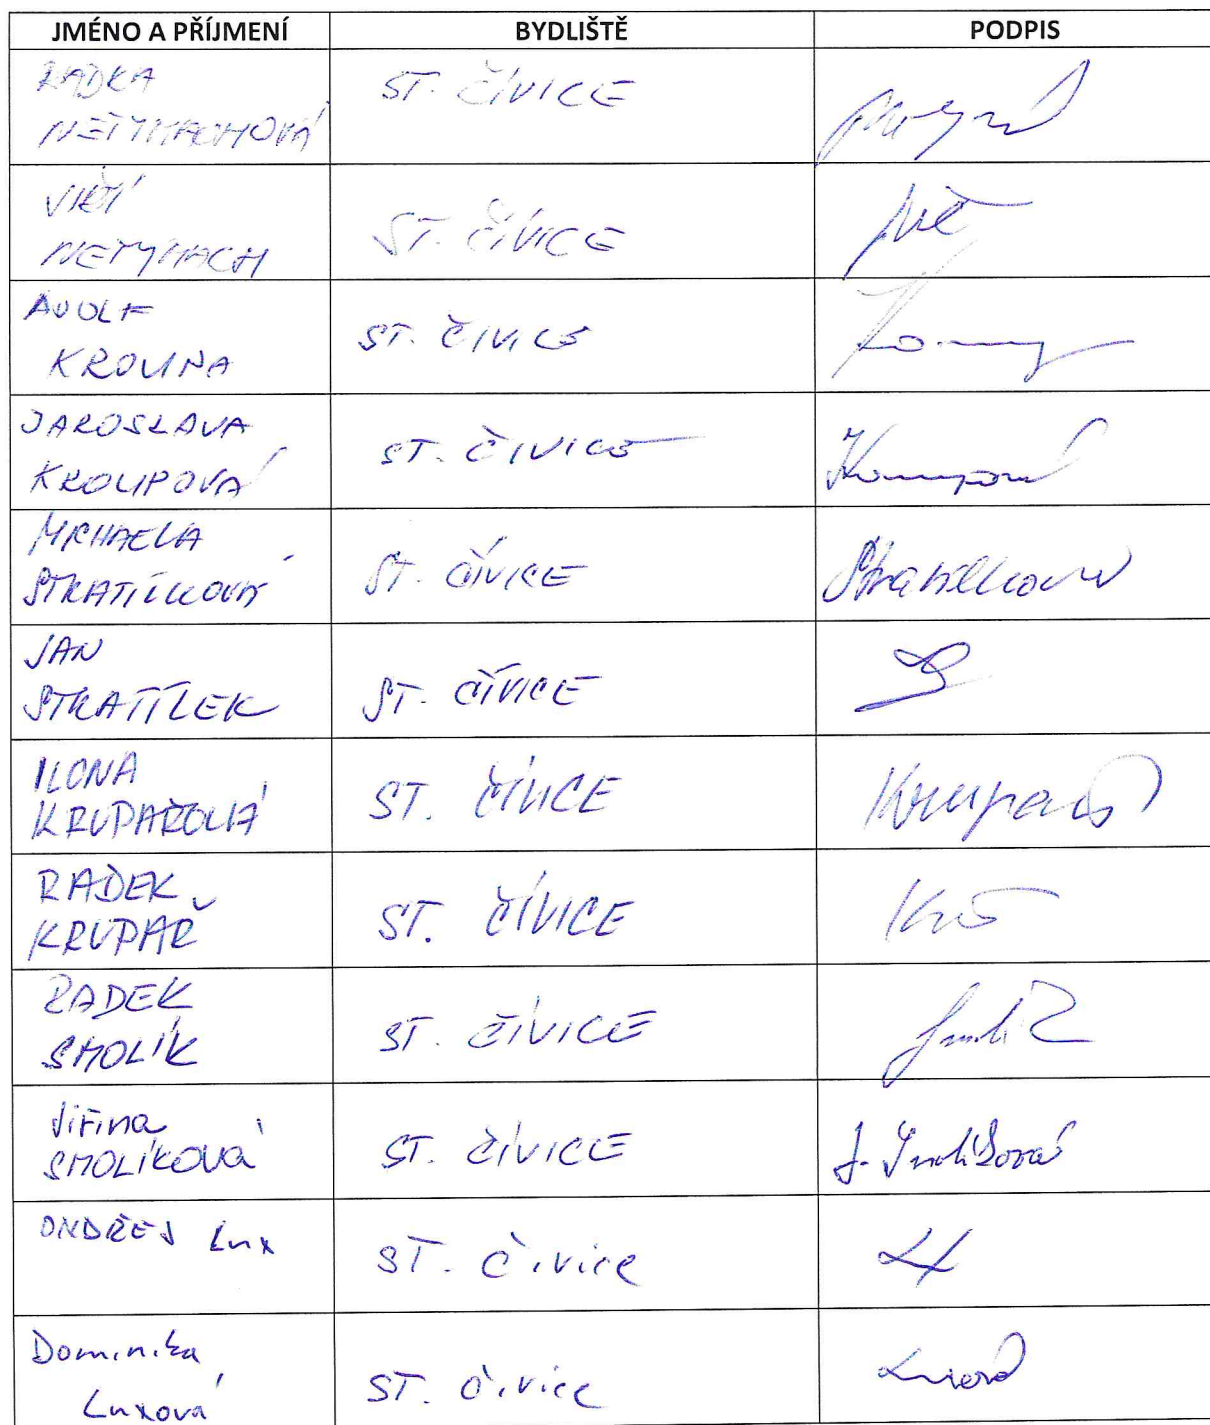 JMÉNO A PŘÍJMENÍ BYDLIŠTĚ PODPIS
RADKA ST. ČÍVICE
NETYMACHOVÁ
JIŘÍ
NETYMACH ST. ČÍVICE
ADOLF
KROUPA ST. ČIVICE
JAROSLAVA
KROUPOVÁ ST. ČIVICE
MICHAELA
STRATÍLKOVÁ ST. ČÍVICE Stratilkova
JAN
STRATÍLEK ST. ČÍVICE
ILONA
KRUPAŘOVÁ ST. ČÍVICE
RADEK
KRUPAŘ ST. ČÍVICE
RADEK
SMOLÍK ST. ČÍVICE Smolík
Jiřina
SMOLÍKOVÁ ST. ČÍVICE J. Smolíková
ONDŘEJ Lux ST. Čivice
Dominika
Luxová ST. Čivice Luxová